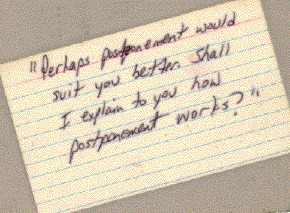 "Perhaps postponement would
suit you better. Shall
I explain to you how
postponement works?"